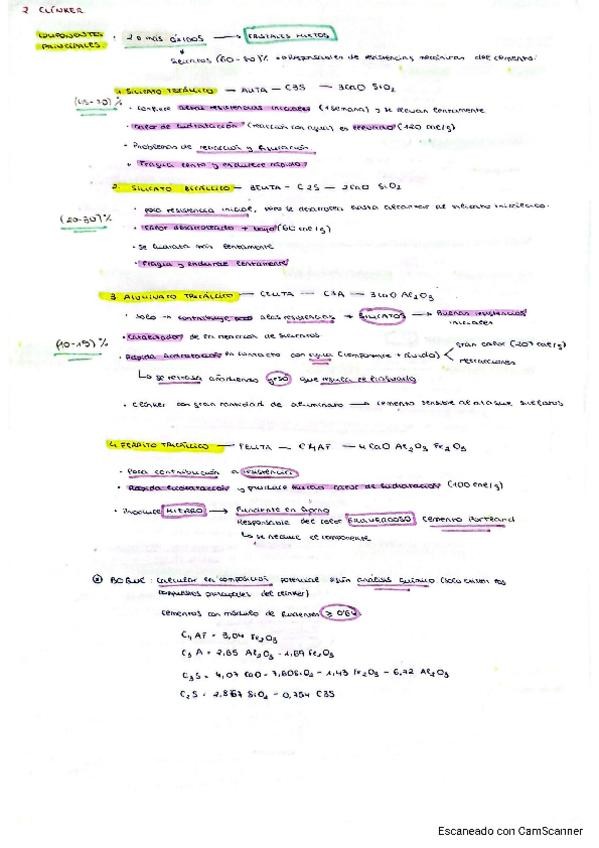 2 CLÍNKER
COMPONENTES PRINCIPALES · 2 o más óxidos → CRISTALES MIXTOS
Silicatos (60-80)% → Responsables de resistencias mecánicas del cemento.
1. SILICATO TRICÁLCICO — ALITA — C3S — 3CaO SiO2
(45-70)%
· Confiere altas resistencias iniciales (1 semana) y se elevan lentamente
· Calor de hidratación (reacción con agua) es elevado (120 cal/g)
· Problemas de retracción y fisuración
· Fragua lento y endurece rápido
2. SILICATO BICÁLCICO — BELITA — C2S — 2CaO SiO2
(20-30)%
· poco resistencia inicial, pero se desarrolla hasta alcanzar al silicato tricálcico.
· Calor desarrollado + bajo (60 cal/g)
· se hidrata más lentamente
· Fragua y endurece lentamente
3. ALUMINATO TRICÁLCICO — CELITA — C3A — 3CaO Al2O3
· solo → contribuye a las resistencias + SILICATOS → Buenas resistencias iniciales
(10-15)%
· Catalizador de la reacción de silicatos
· Rápida hidratación en contacto con agua (componente + fluido) < gran calor (207 cal/g)
retracciones
↳ se retrasa añadiendo yeso que regula el fraguado
· Clínker con gran cantidad de aluminato → cemento sensible al ataque sulfatos
4. FERRITO TRICÁLCICO — FELITA — C4AF — 4CaO Al2O3 Fe2O3
· Poca contribución a resistencias
· Rápida hidratación y produce mucho calor de hidratación (100 cal/g)
· introduce HIERRO → Fundente en horno
Responsable del color GRIS VERDOSO cemento Portland
↳ se reduce el componente
BOGUE: Calcular la composición potencial según análisis químico (solo existen los
compuestos principales del clínker)
Cementos con módulo de fundentes ≥ 0'64
C4AF = 3,04 Fe2O3
C3A = 2,65 Al2O3 - 1,69 Fe2O3
C3S = 4,07 CaO - 7,60SiO2 - 1,43 Fe2O3 - 6,72 Al2O3
C2S = 2,867 SiO2 - 0,754 C3S
Escaneado con CamScanner